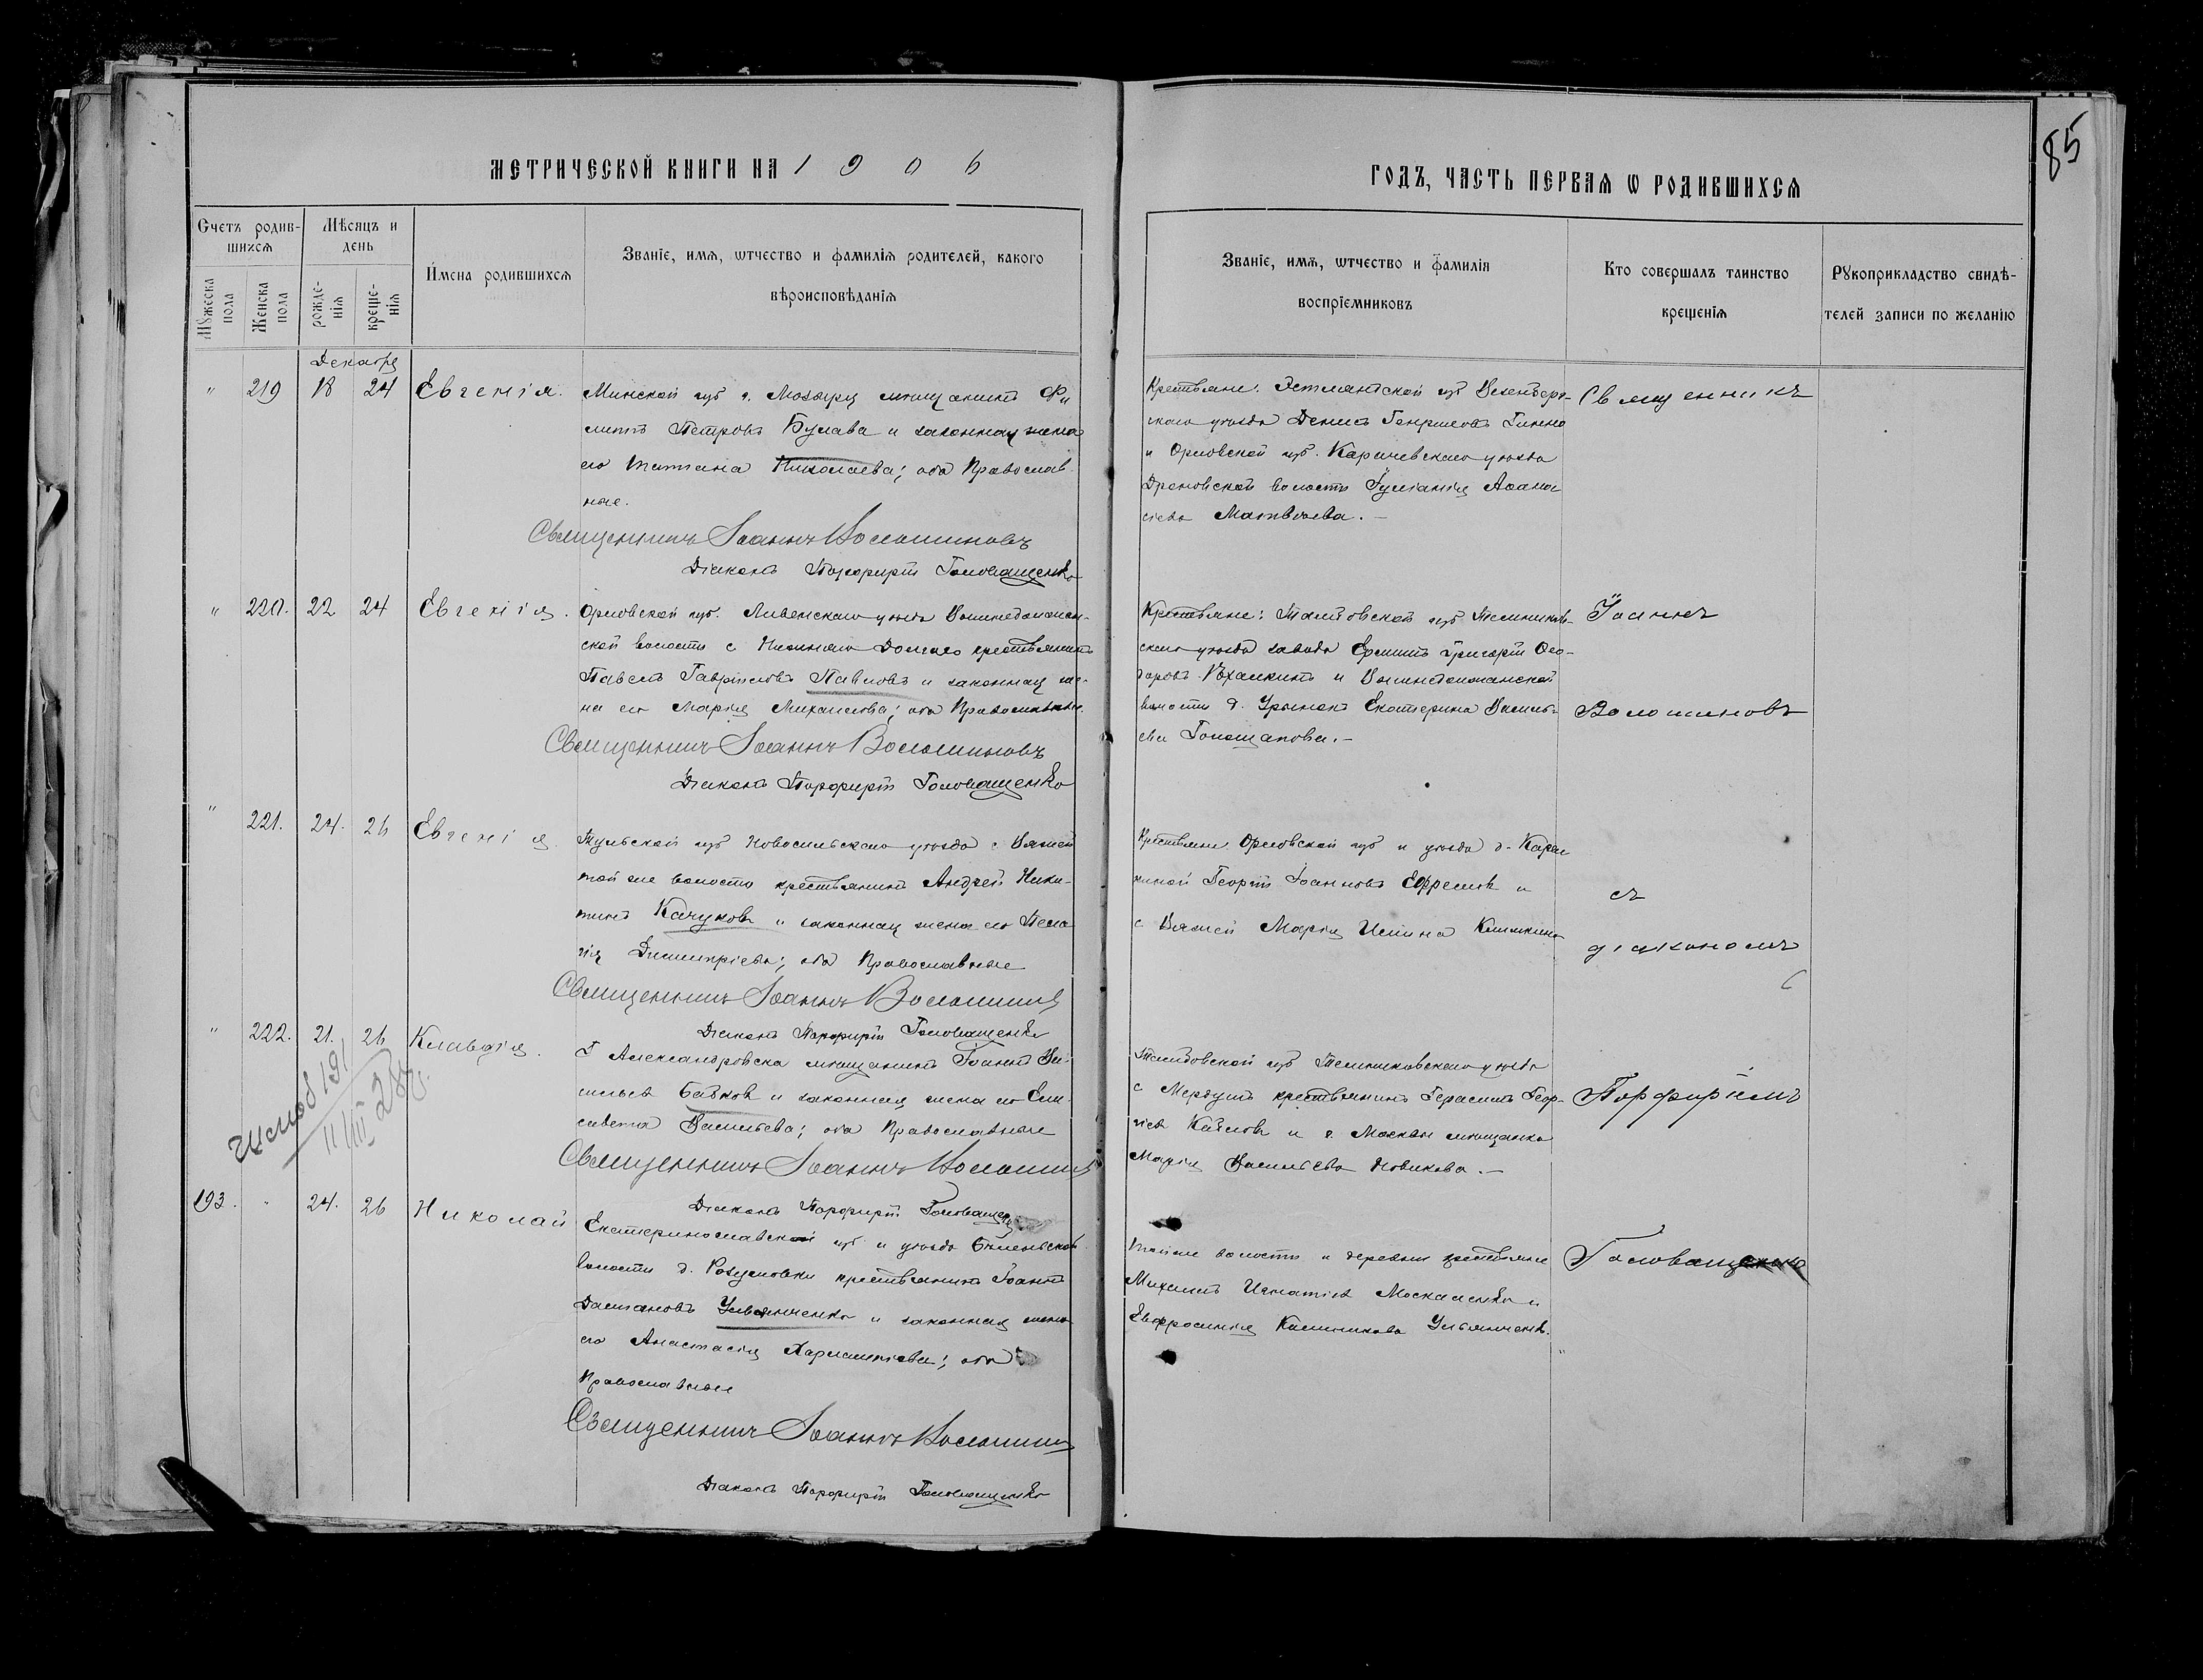 85
МЕТРИЧЕСКОЙ КНИГИ НА 1906
ГОДЪ, ЧАСТЬ ПЕРВАЯ Ѡ РОДИВШИХСЯ
Счетъ родив-
шихся
Мѣсяцъ и
день
Мꙋжеска пола
Женска пола
рожде-
нія
креще-
нія
Имена родившихся
Званіе, имя, ѡтчество и фамилія родителей, какого
вѣроисповѣданія
Званіе, имя, ѡтчество и фамилія
воспріемниковъ
Кто совершалъ таинство
крещенія
Рꙋкоприкладство свидѣ-
телей записи по желанію
Декабря
" 219 18 24 Евгенія.
Минской губ г. Мозыря мѣщанинъ Фи
липпъ Петровъ Булава и законная жена
его Татіана Николаева; оба Православ
ные.
Священникъ Іоаннъ Волошиновъ
Діаконъ Порфирій Головащенко
Крестьяне: Эстляндской губ Везенберг-
скаго уѣзда Денисъ
и Орловской губ. Карачевскаго уѣзда
Дроновской волости Іуліанія Аѳана
сіева Матвѣева.
Священникъ
" 220. 22 24 Евгенія.
Орловской губ. Ливенскаго уѣзда
ской волости с Нижняго Долгаго крестьянинъ
Павелъ Гавріиловъ Павловъ и законная же-
на его Марія Михаилова; оба Православные.
Священникъ Іоаннъ Волошиновъ
Діаконъ Порфирій Головащенко
Крестьяне: Тамбовской губ Темников-
скаго уѣзда завода Григорій Ѳео-
доровъ и
волости д. Екатерина Василь-
ева
Іоаннъ
Волошиновъ
" 221. 24. 26 Евгенія.
Тульской губ Новосильскаго уѣзда с Вяжей
той же волости крестьянинъ Андрей Ники-
тинъ Качуковъ и законная жена его Пела
гія Димитріева; оба Православные
Священникъ Іоаннъ Волошинов
Діаконъ Порфирій Головащенко
Крестьяне Орловской губ и уѣзда д.
Георгій Іоанновъ Ефремовъ и
с Вяжей Марія
съ
діакономъ
" 222. 21. 26 Клавдія.
Г Александровска мѣщанинъ Іоаннъ Ва-
сильевъ Бабковъ и законная жена его Ели-
савета Васильева; оба Православные
Священникъ Іоаннъ Волошинов
Діаконъ Порфирій Головащенко
Тамбовской губ Темниковскаго уѣзда
с крестьянинъ Герасимъ Геор-
гіевъ и г. Москвы мѣщанка
Марія Васильева Новикова.
Порфиріемъ
193. " 24. 26 Николай
Екатеринославской губ и уѣзда Бѣленьской
волости д. Разумовки крестьянинъ Іоаннъ
Даміановъ Ульянченко и законная жена
его Анастасія Харлампіева; оба
Православные
Священникъ Іоаннъ Волошинов
Діаконъ Порфирій Головащенко
Той же волости и деревни крестьяне
Михаилъ Игнатіевъ Москаленко и
Евфросинія Калиникова Ульянченко.
Головащенко